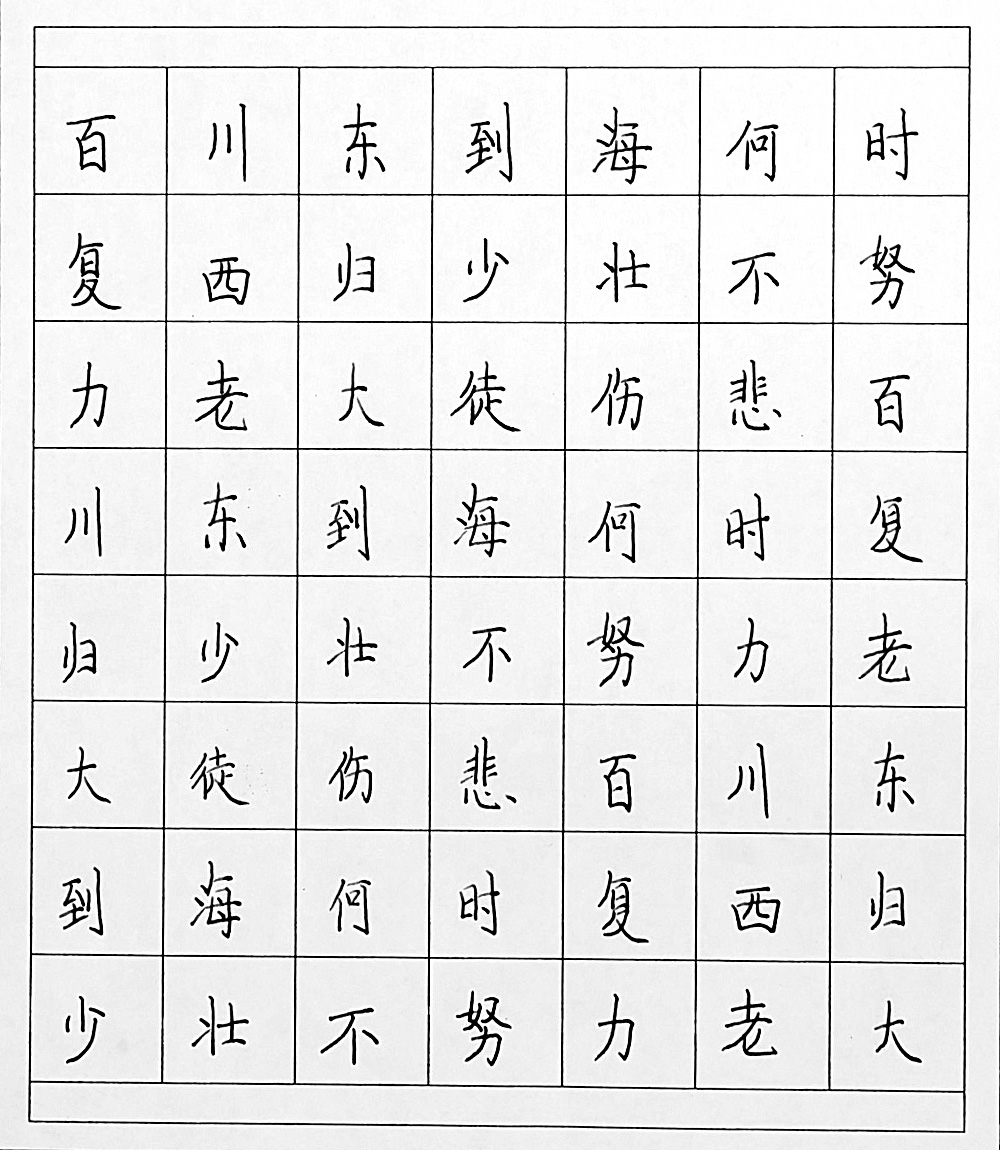 百川东到海何时
复西归少壮不努
力老大徒伤悲百
川东到海何时复
归少壮不努力老
大徒伤悲百川东
到海何时复西归
少壮不努力老大